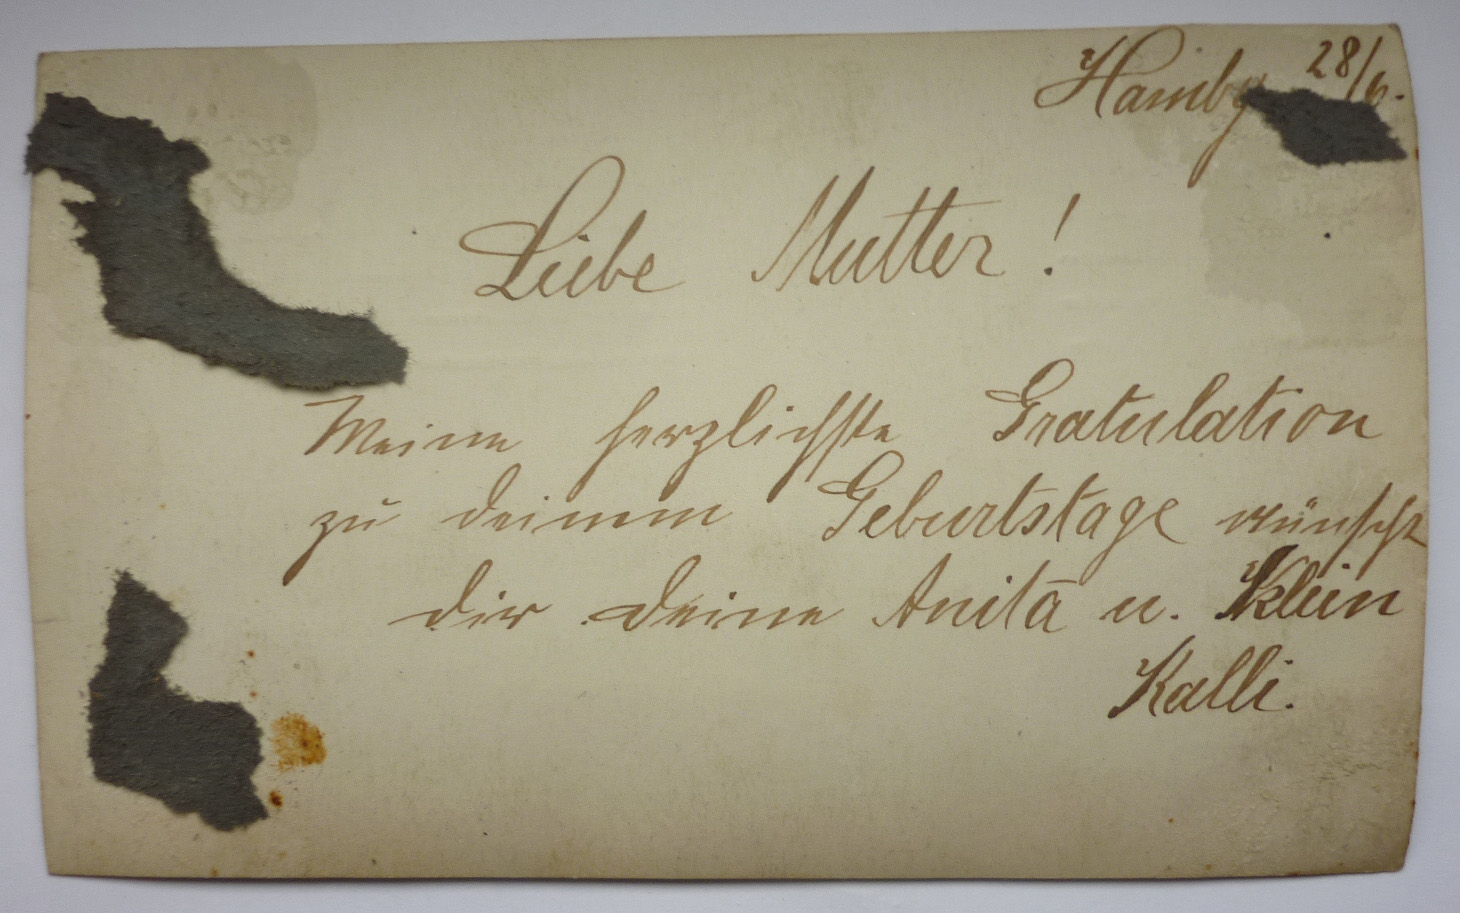 Hambg 28/6.
Liebe Mutter!
Meine herzlichste Gratulation
zu deinem Geburtstage wünscht
dir deine Anita u. Klein
Kalli.